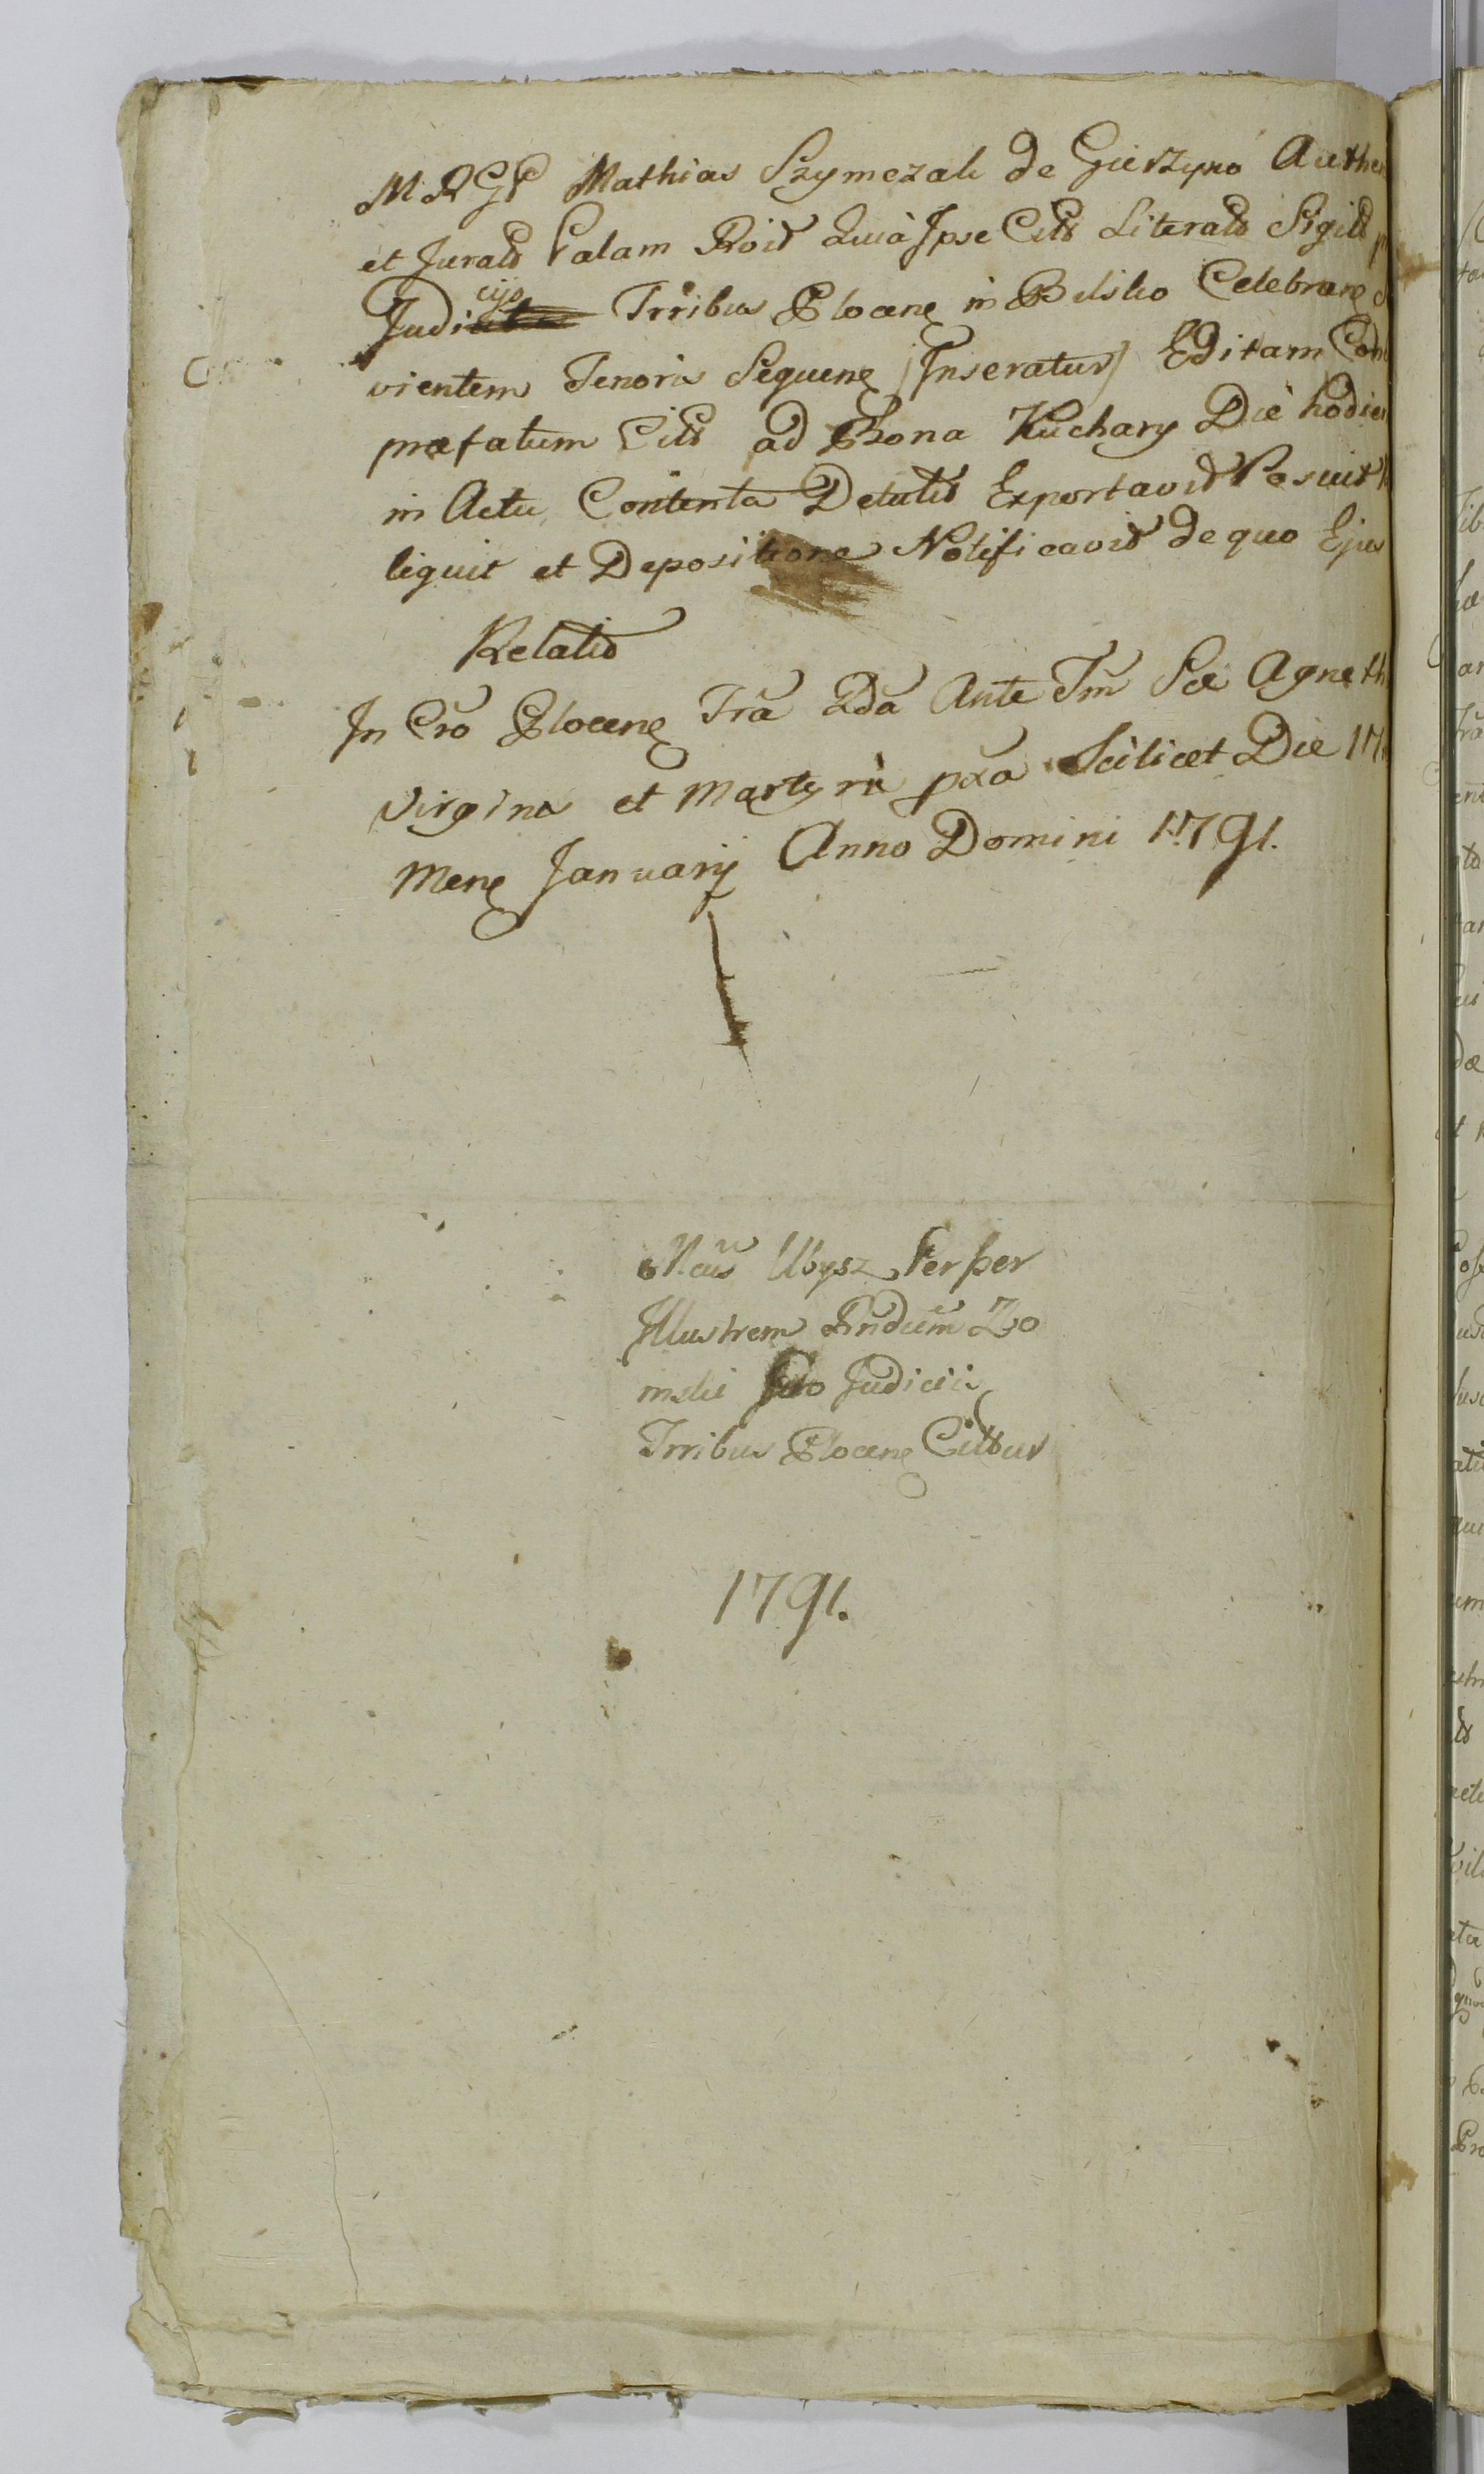 Mathias Szymczak de Giżyno Authen
et Jurats Palam Roit Quia Ipse Citt Literals Sigill
Judicijs Trribus Plocens in Bilsko Celebrans
vientem Tenoris Sequens /Inseratur/ Editam Con
præfatum Citt ad Bona Kuchary Die hodier
in Actu Contenta Detulit Exportavit Posuit
liquit et Depositione Notificavit de quo Ejus
Relatio
In Cro Plocens Fra 2da Ante Fm Scæ Agneth
Virginis et Martyris pxa Scilicet Die 17
Mens Januarij Anno Domini 1791.
Ubysz Per
Illustrem
mski Judicii
Trribus Plocens Cittur
1791.